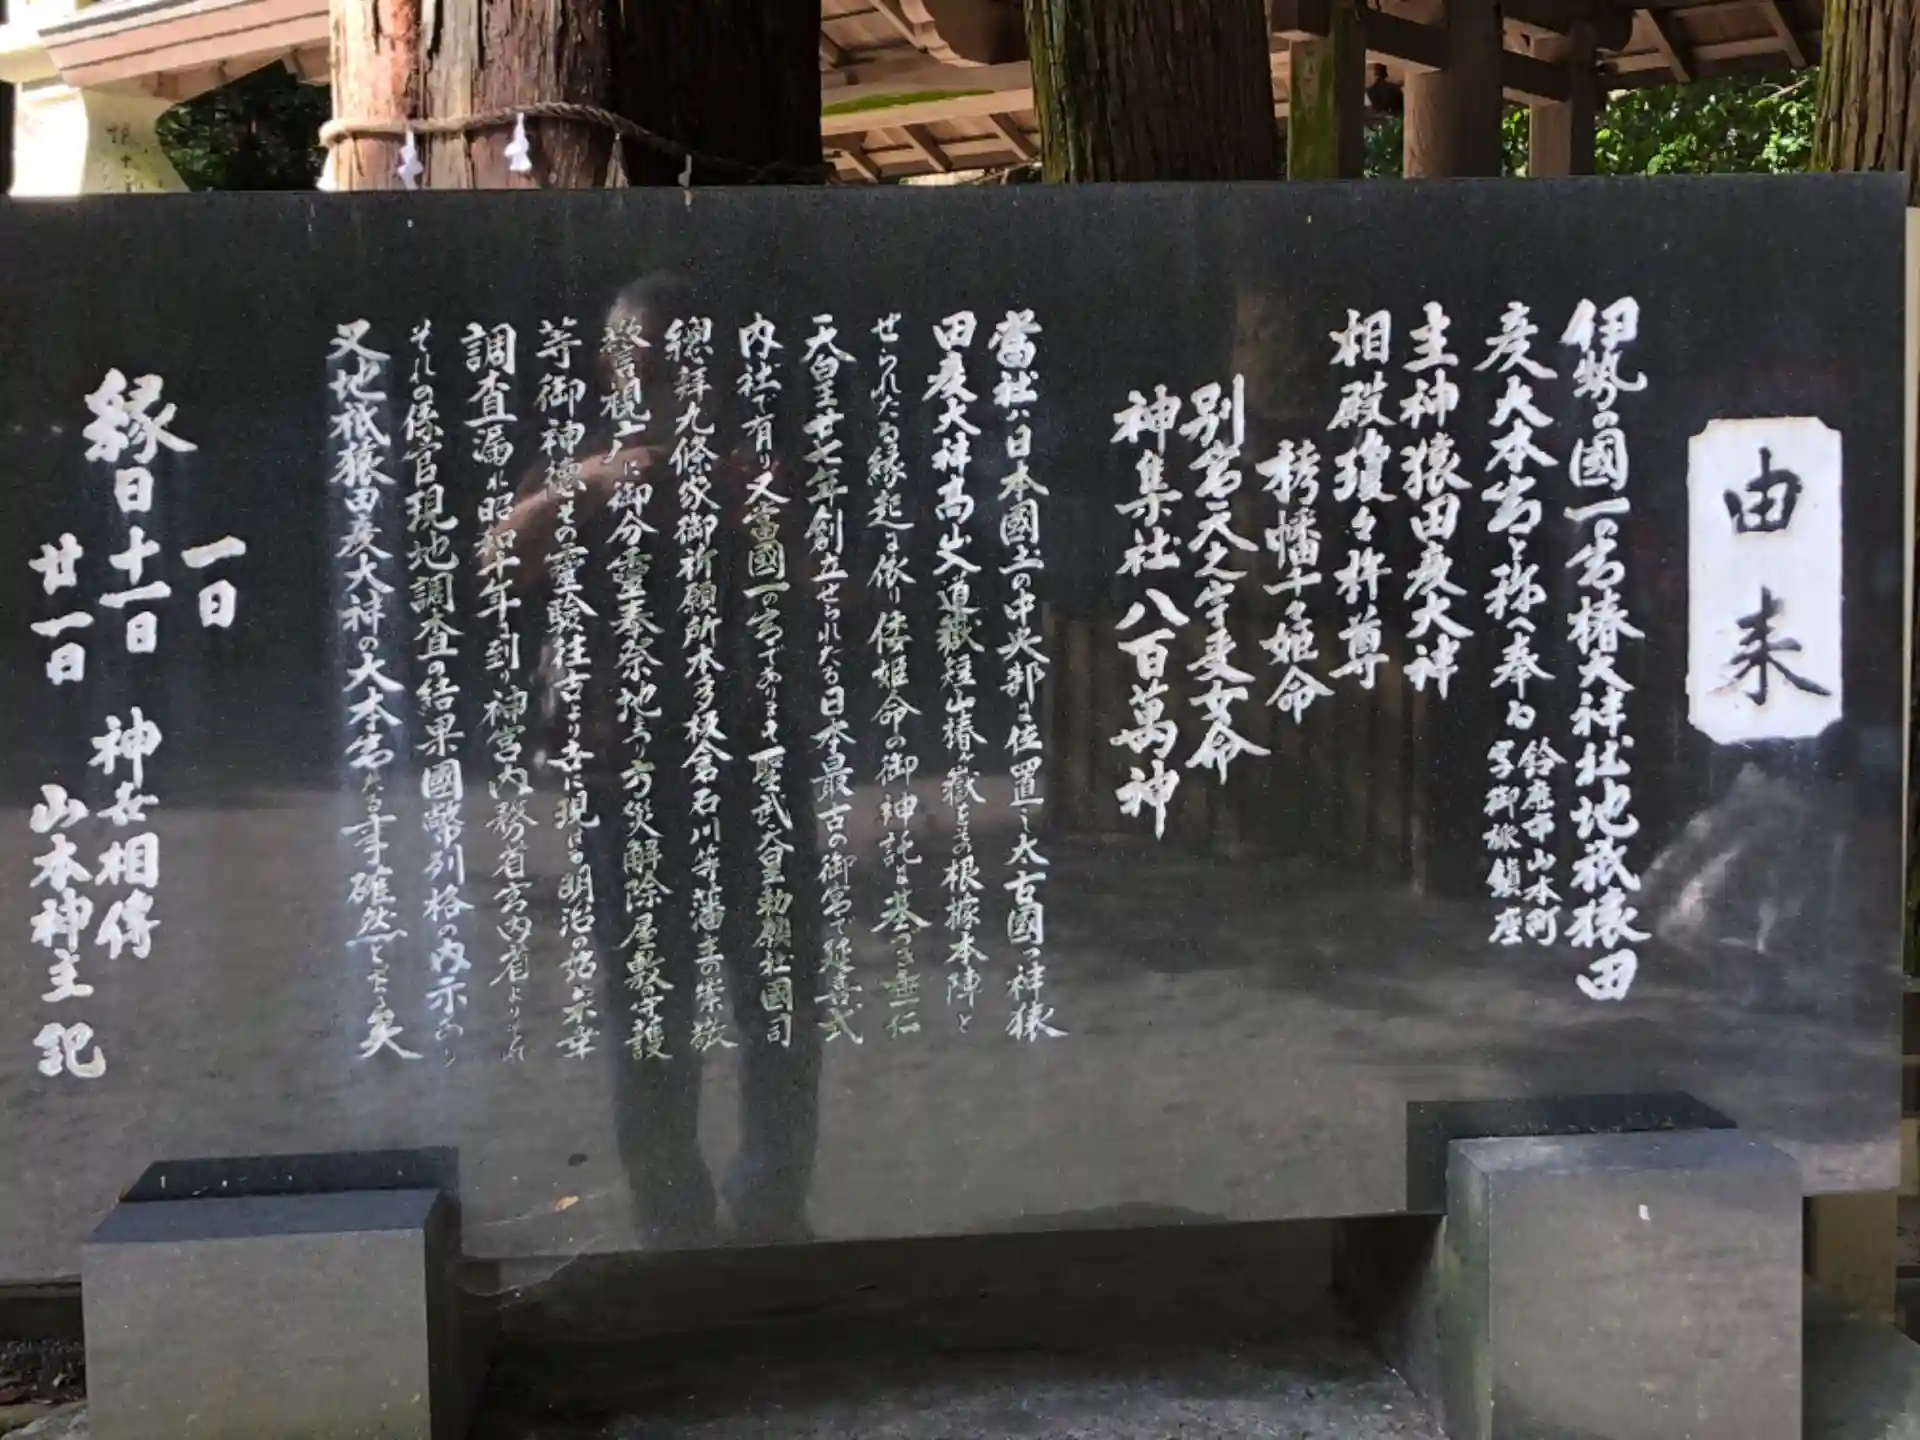 由来
伊勢の國一の宮椿大神社地祇猿田
彦大本宮と称へ奉る
鈴鹿市山本町
御旅鎮座
主神猿田彦大神
相殿瓊々杵尊
栲幡千々姫命
別宮天之宇受女命
神集社八百萬神
當社ハ日本國土の中央部に位置し太古國つ神猿
田彦大神高山大道嶽短山椿ヶ嶽をその根據本陣と
せられたる縁起に依り倭姫命の御神託に基つき垂仁
天皇廿七年創立せられたる日本最古の御宮で延喜式
内社で有り又當國一の宮であります聖武天皇勅願社國司
總拝九條家御祈願所本多板倉石川等藩主の崇敬
江戸に御分霊奉祭地あり方災解除屋敷守護
等御神徳その霊驗往古より
に現はる明治の始
調査漏れ昭和十年に到り神宮内務省宮内省より
それの係官現地調査の結果國幣列格の内示あり
又地祇猿田彦大神の大本宮たる事確然たる矣
一日
縁日十一日 神女相傳
廿一日 山本神主記